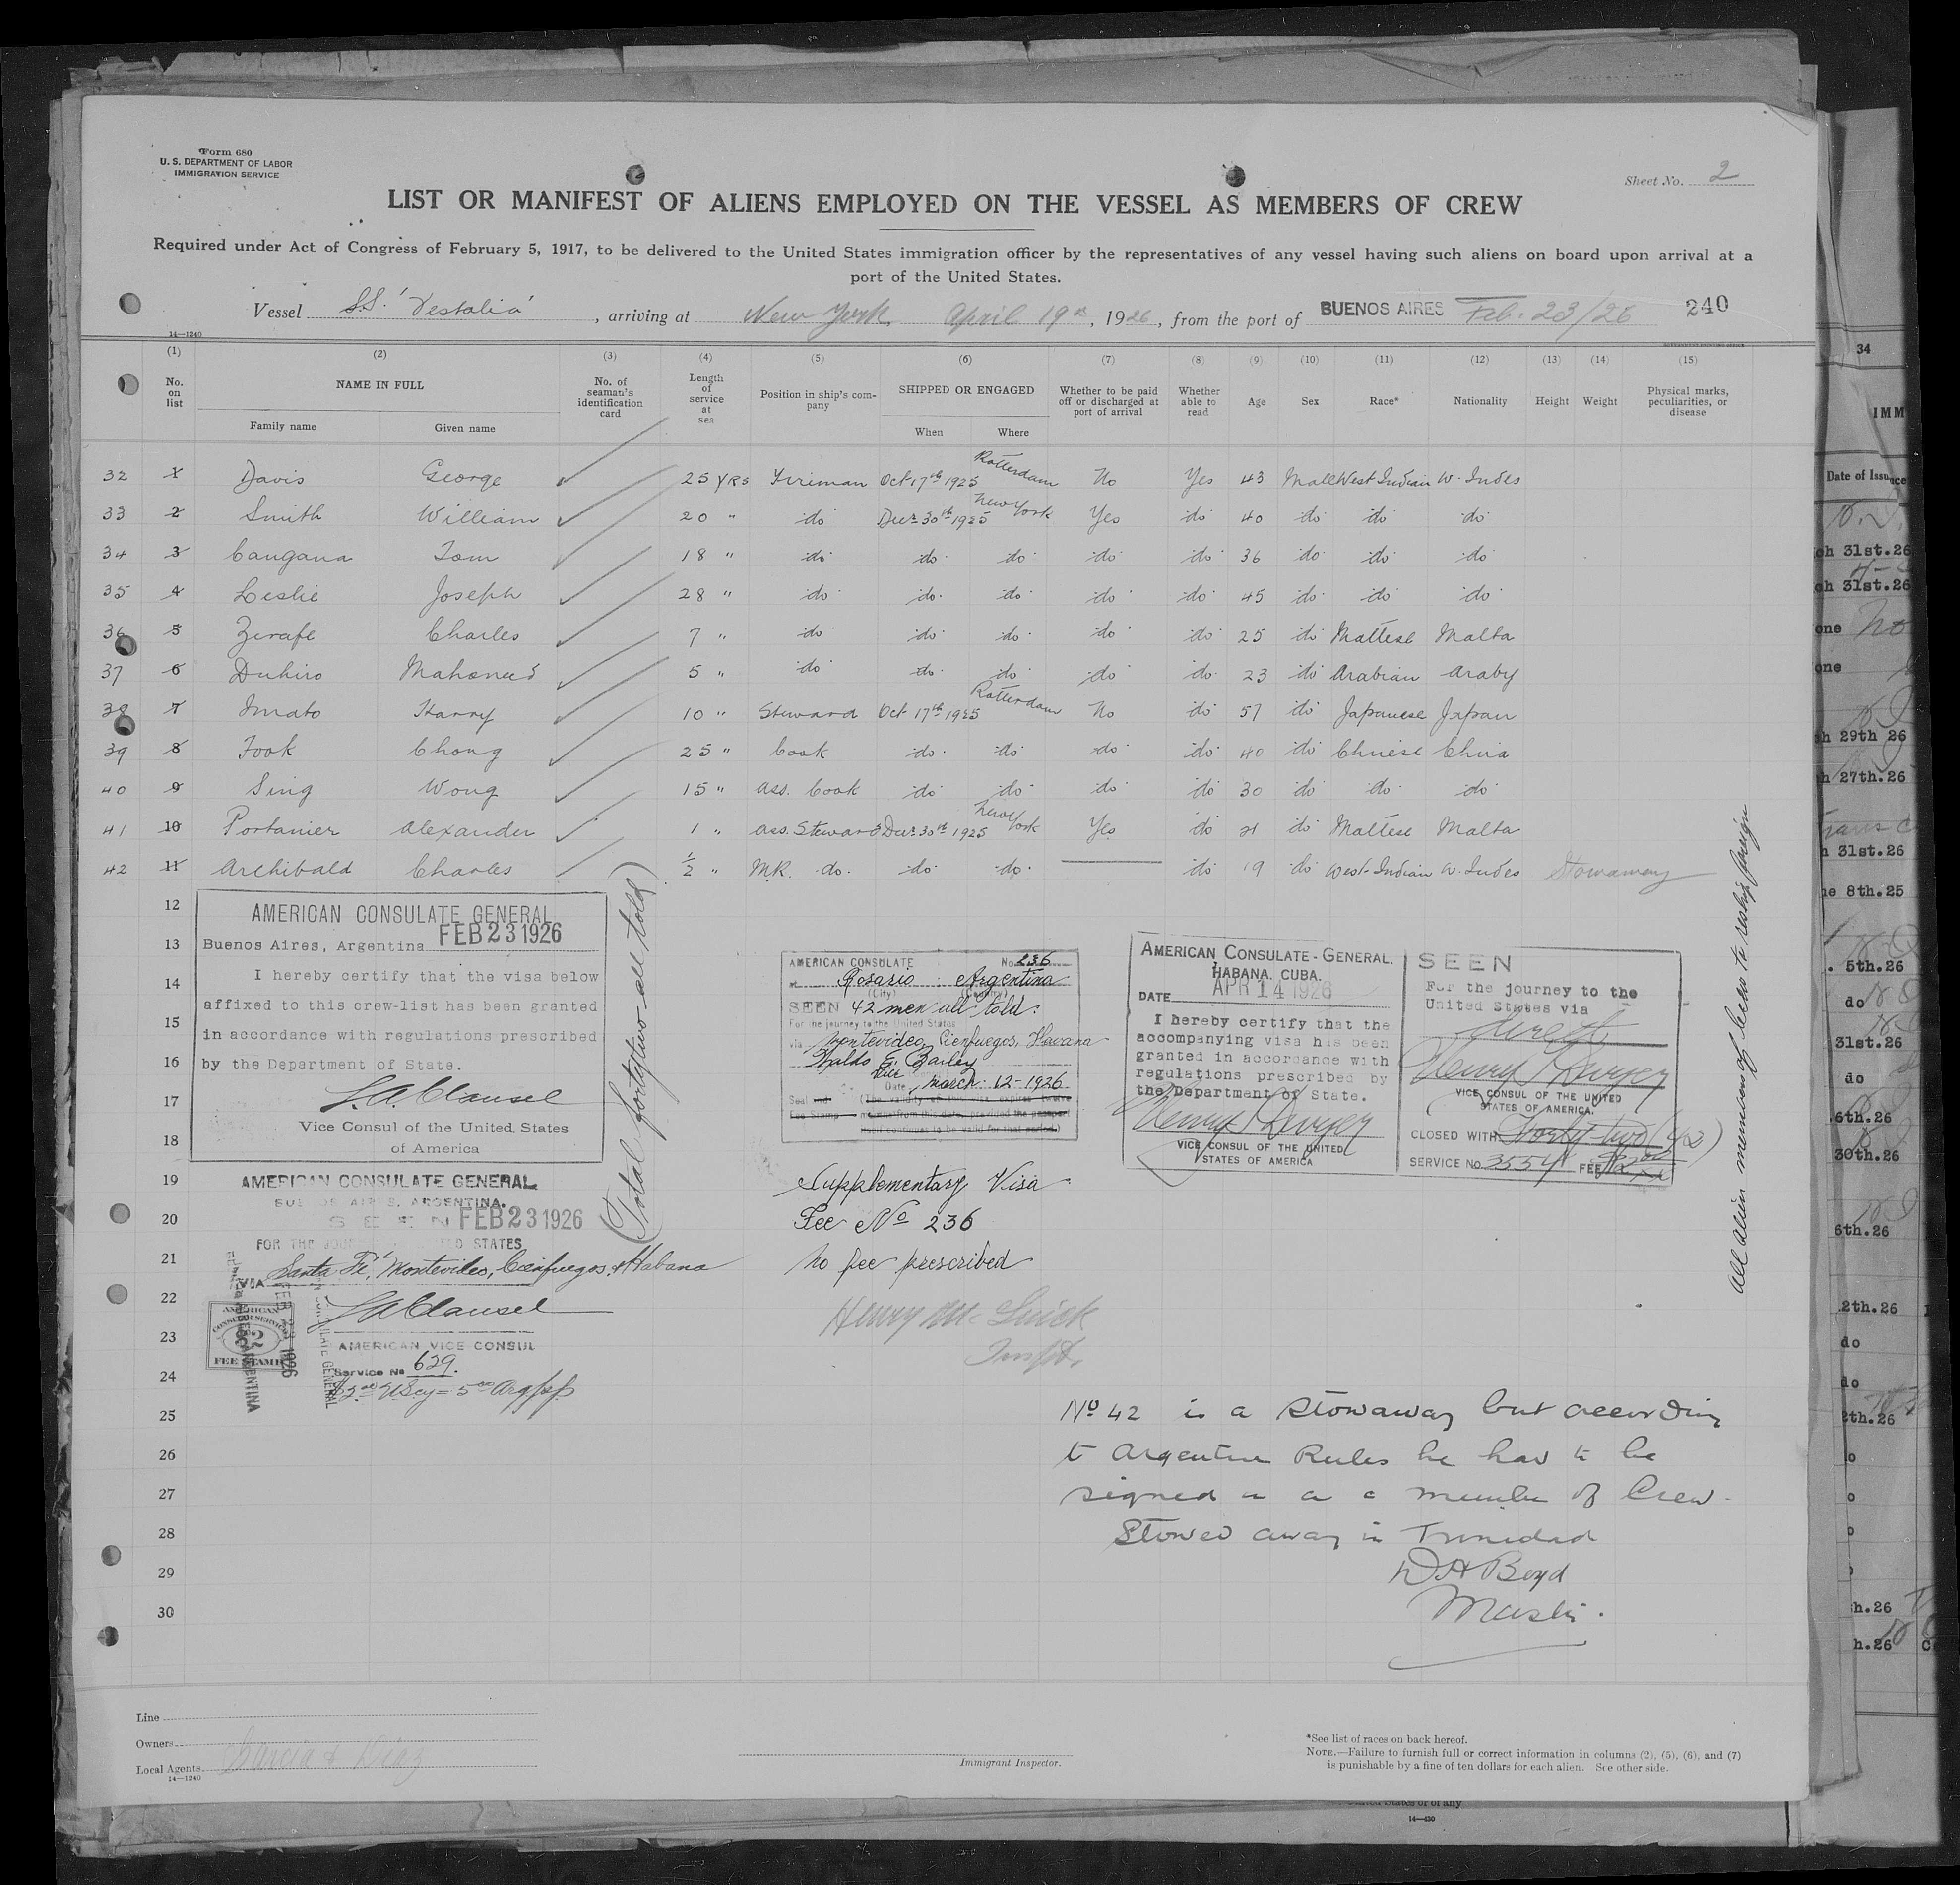 Form 680
U. S. DEPARTMENT OF LABOR
IMMIGRATION SERVICE
Sheet No. 2
LIST OR MANIFEST OF ALIENS EMPLOYED ON THE VESSEL AS MEMBERS OF CREW
Required under Act of Congress of February 5, 1917, to be delivered to the United States immigration officer by the representatives of any vessel having such aliens on board upon arrival at a
port of the United States.
Vessel S.S. 'Vestalia', arriving at New York, April 19th, 1926, from the port of BUENOS AIRES Feb. 23/26 240
14—1240
(1) (2) (3) (4) (5) (6) (7) (8) (9) (10) (11) (12) (13) (14) (15)
No. on list NAME IN FULL No. of seaman's identification card Length of service at sea Position in ship's company SHIPPED OR ENGAGED Whether to be paid off or discharged at port of arrival Whether able to read Age Sex Race* Nationality Height Weight Physical marks, peculiarities, or disease
Family name Given name When Where
32 1 Davis George 25 YRS Fireman Oct 17th 1925 Rotterdam No Yes 43 Male West Indian W. Indes
33 2 Smith William 20 " do Decr 30th 1925 New York Yes do 40 do do do
34 3 Caugana Tom 18 " do do do do do 36 do do do
35 4 Leslie Joseph 28 " do do do do do 45 do do do
36 5 Zerafe Charles 7 " do do do do do 25 do Maltese Malta
37 6 Duhiro Mahomed 5 " do do do do do 23 do Arabian Araby
38 7 Imato Harry 10 " Steward Oct 17th 1925 Rotterdam No do 57 do Japanese Japan
39 8 Fook Chong 25 " Cook do do do do 40 do Chinese China
40 9 Sing Wong 15 " Ass. Cook do do do do 30 do do do
41 10 Portanier Alexander 1 " Ass. Steward Decr 30th 1925 New York Yes do 21 do Maltese Malta
42 11 Archibald Charles 1/2 " M.R. do. do do do 19 do West-Indian W. Indes Stowaway
12
13
14
15
16
17
18
19
20
21
22
23
24
25
26
27
28
29
30
AMERICAN CONSULATE GENERAL
Buenos Aires, Argentina FEB 23 1926
I hereby certify that the visa below
affixed to this crew-list has been granted
in accordance with regulations prescribed
by the Department of State.
S.A. Clausel
Vice Consul of the United States
of America
(Total fortytwo all told)
AMERICAN CONSULATE GENERAL
BUENOS AIRES, ARGENTINA.
SEEN FEB 23 1926
FOR THE JOUR STATES
VIA Santa Fé, Montevideo, Cienfuegos, & Habana
S.A. Clausel
AMERICAN CONSULAR SERVICE
$2
FEE STAMP
FEB 23 1926
AMERICAN VICE CONSUL
Service No 629.
AMERICAN CONSULATE No. 236
at Rosario Argentina
(City) (Country)
SEEN 42 men all told:
For the journey to the United States
via Montevideo, Cienfuegos, Havana
Waldo E. Bailey
Vice
Date March: 12-1926
Seal and
Fee Stamp
(The validity of this visa expires twelve
months from this date, provided the passport
itself continues to be valid for that period.)
Supplementary Visa
Fee No 236
No fee prescribed
Henry Mc Guick
Inspt.
AMERICAN CONSULATE-GENERAL.
HABANA. CUBA.
DATE APR 14 1926
I hereby certify that the
accompanying visa has been
granted in accordance with
regulations prescribed by
the Department of State.
Henry Dwyer
VICE CONSUL OF THE UNITED
STATES OF AMERICA
SEEN
For the journey to the
United States via
direct
Henry Dwyer
VICE CONSUL OF THE UNITED
STATES OF AMERICA.
CLOSED WITH Forty-two (42)
SERVICE No. 3554 FEE $2.00
No 42 is a Stowaway but according
to Argentine Rules he has to be
signed on as a member of Crew.
Stowed away in Trinidad
D H Boyd
Master.
Line
Owners
Local Agents Garcia & Diaz
14—1240
Immigrant Inspector.
*See list of races on back hereof.
NOTE.—Failure to furnish full or correct information in columns (2), (5), (6), and (7)
is punishable by a fine of ten dollars for each alien. See other side.
14—430
34
IMM
Date of Issuance
ch 31st.26
ch 31st.26
one No
one
h 29th 26
h 27th.26
h 31st.26
ne 8th.25
. 5th.26
do
31st.26
do
6th.26
30th.26
6th.26
2th.26
do
do
2th.26
h.26
h.26